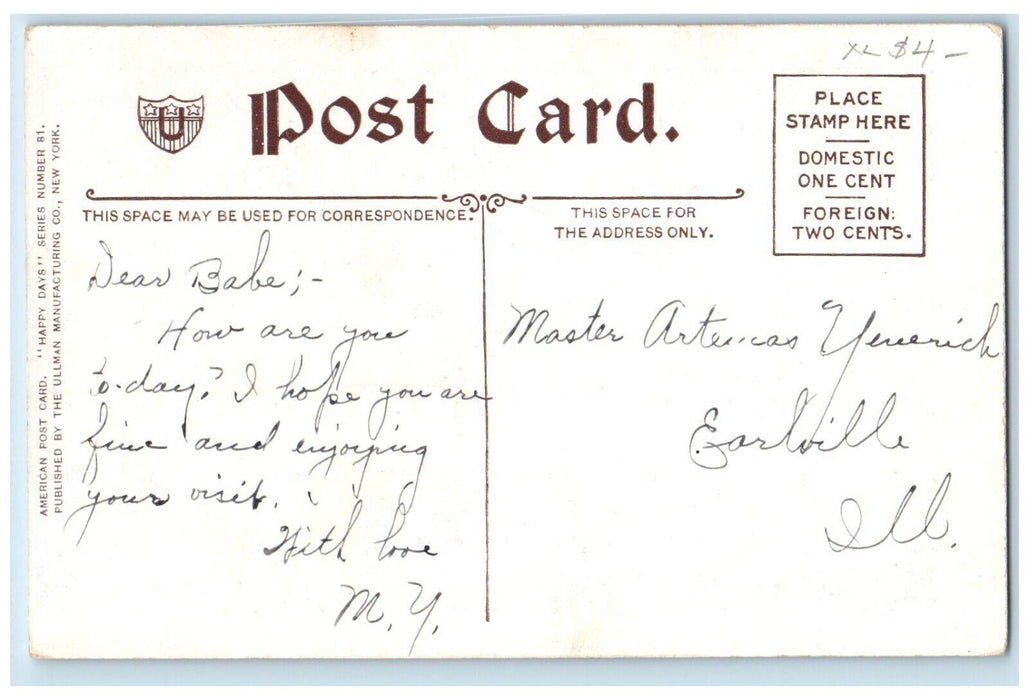 XL $4-
U
Post Card.
PLACE
STAMP HERE
DOMESTIC
ONE CENT
FOREIGN:
TWO CENTS.
AMERICAN POST CARD. "HAPPY DAYS" SERIES NUMBER 81.
PUBLISHED BY THE ULLMAN MANUFACTURING CO., NEW YORK.
THIS SPACE MAY BE USED FOR CORRESPONDENCE.
THIS SPACE FOR
THE ADDRESS ONLY.
Dear Babe;-
How are you
to-day? I hope you are
fine and enjoying
your visit.
With love
M. Y.
Master Artemas Yenerich
Earlville
Ill.